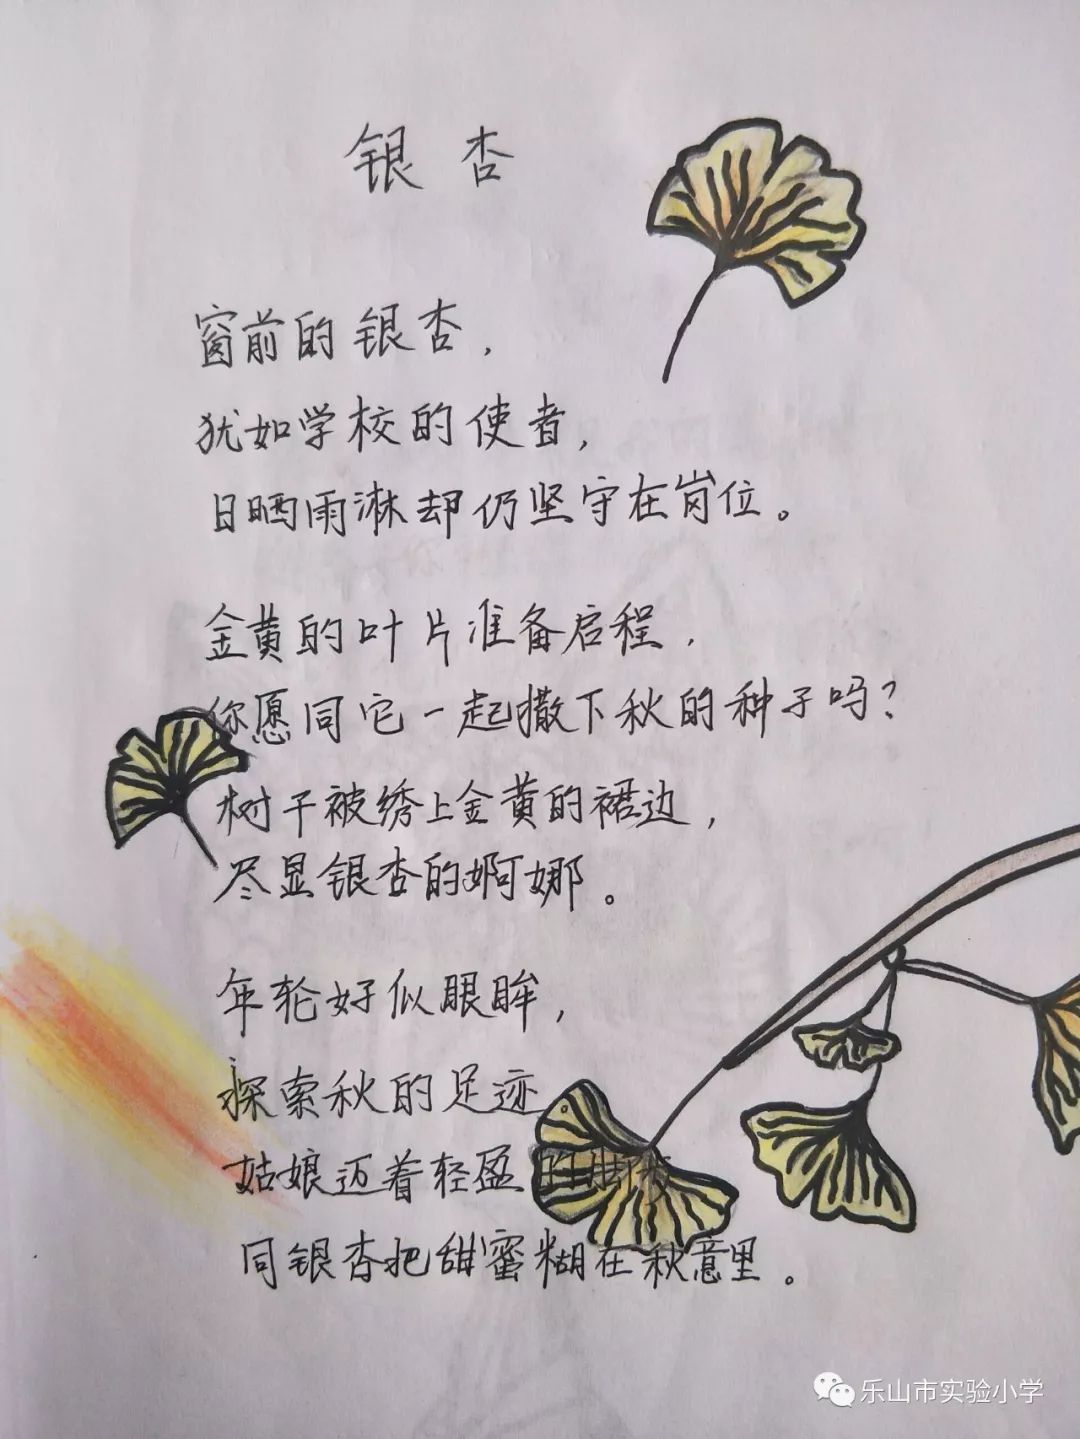 银杏
窗前的银杏，
犹如学校的使者，
日晒雨淋却仍坚守在岗位。
金黄的叶片准备启程，
你愿同它一起撒下秋的种子吗？
树干被绣上金黄的裙边，
尽显银杏的婀娜。
年轮好似眼眸，
探索秋的足迹
姑娘迈着轻盈的脚步
同银杏把甜蜜糊在秋意里。
乐山市实验小学